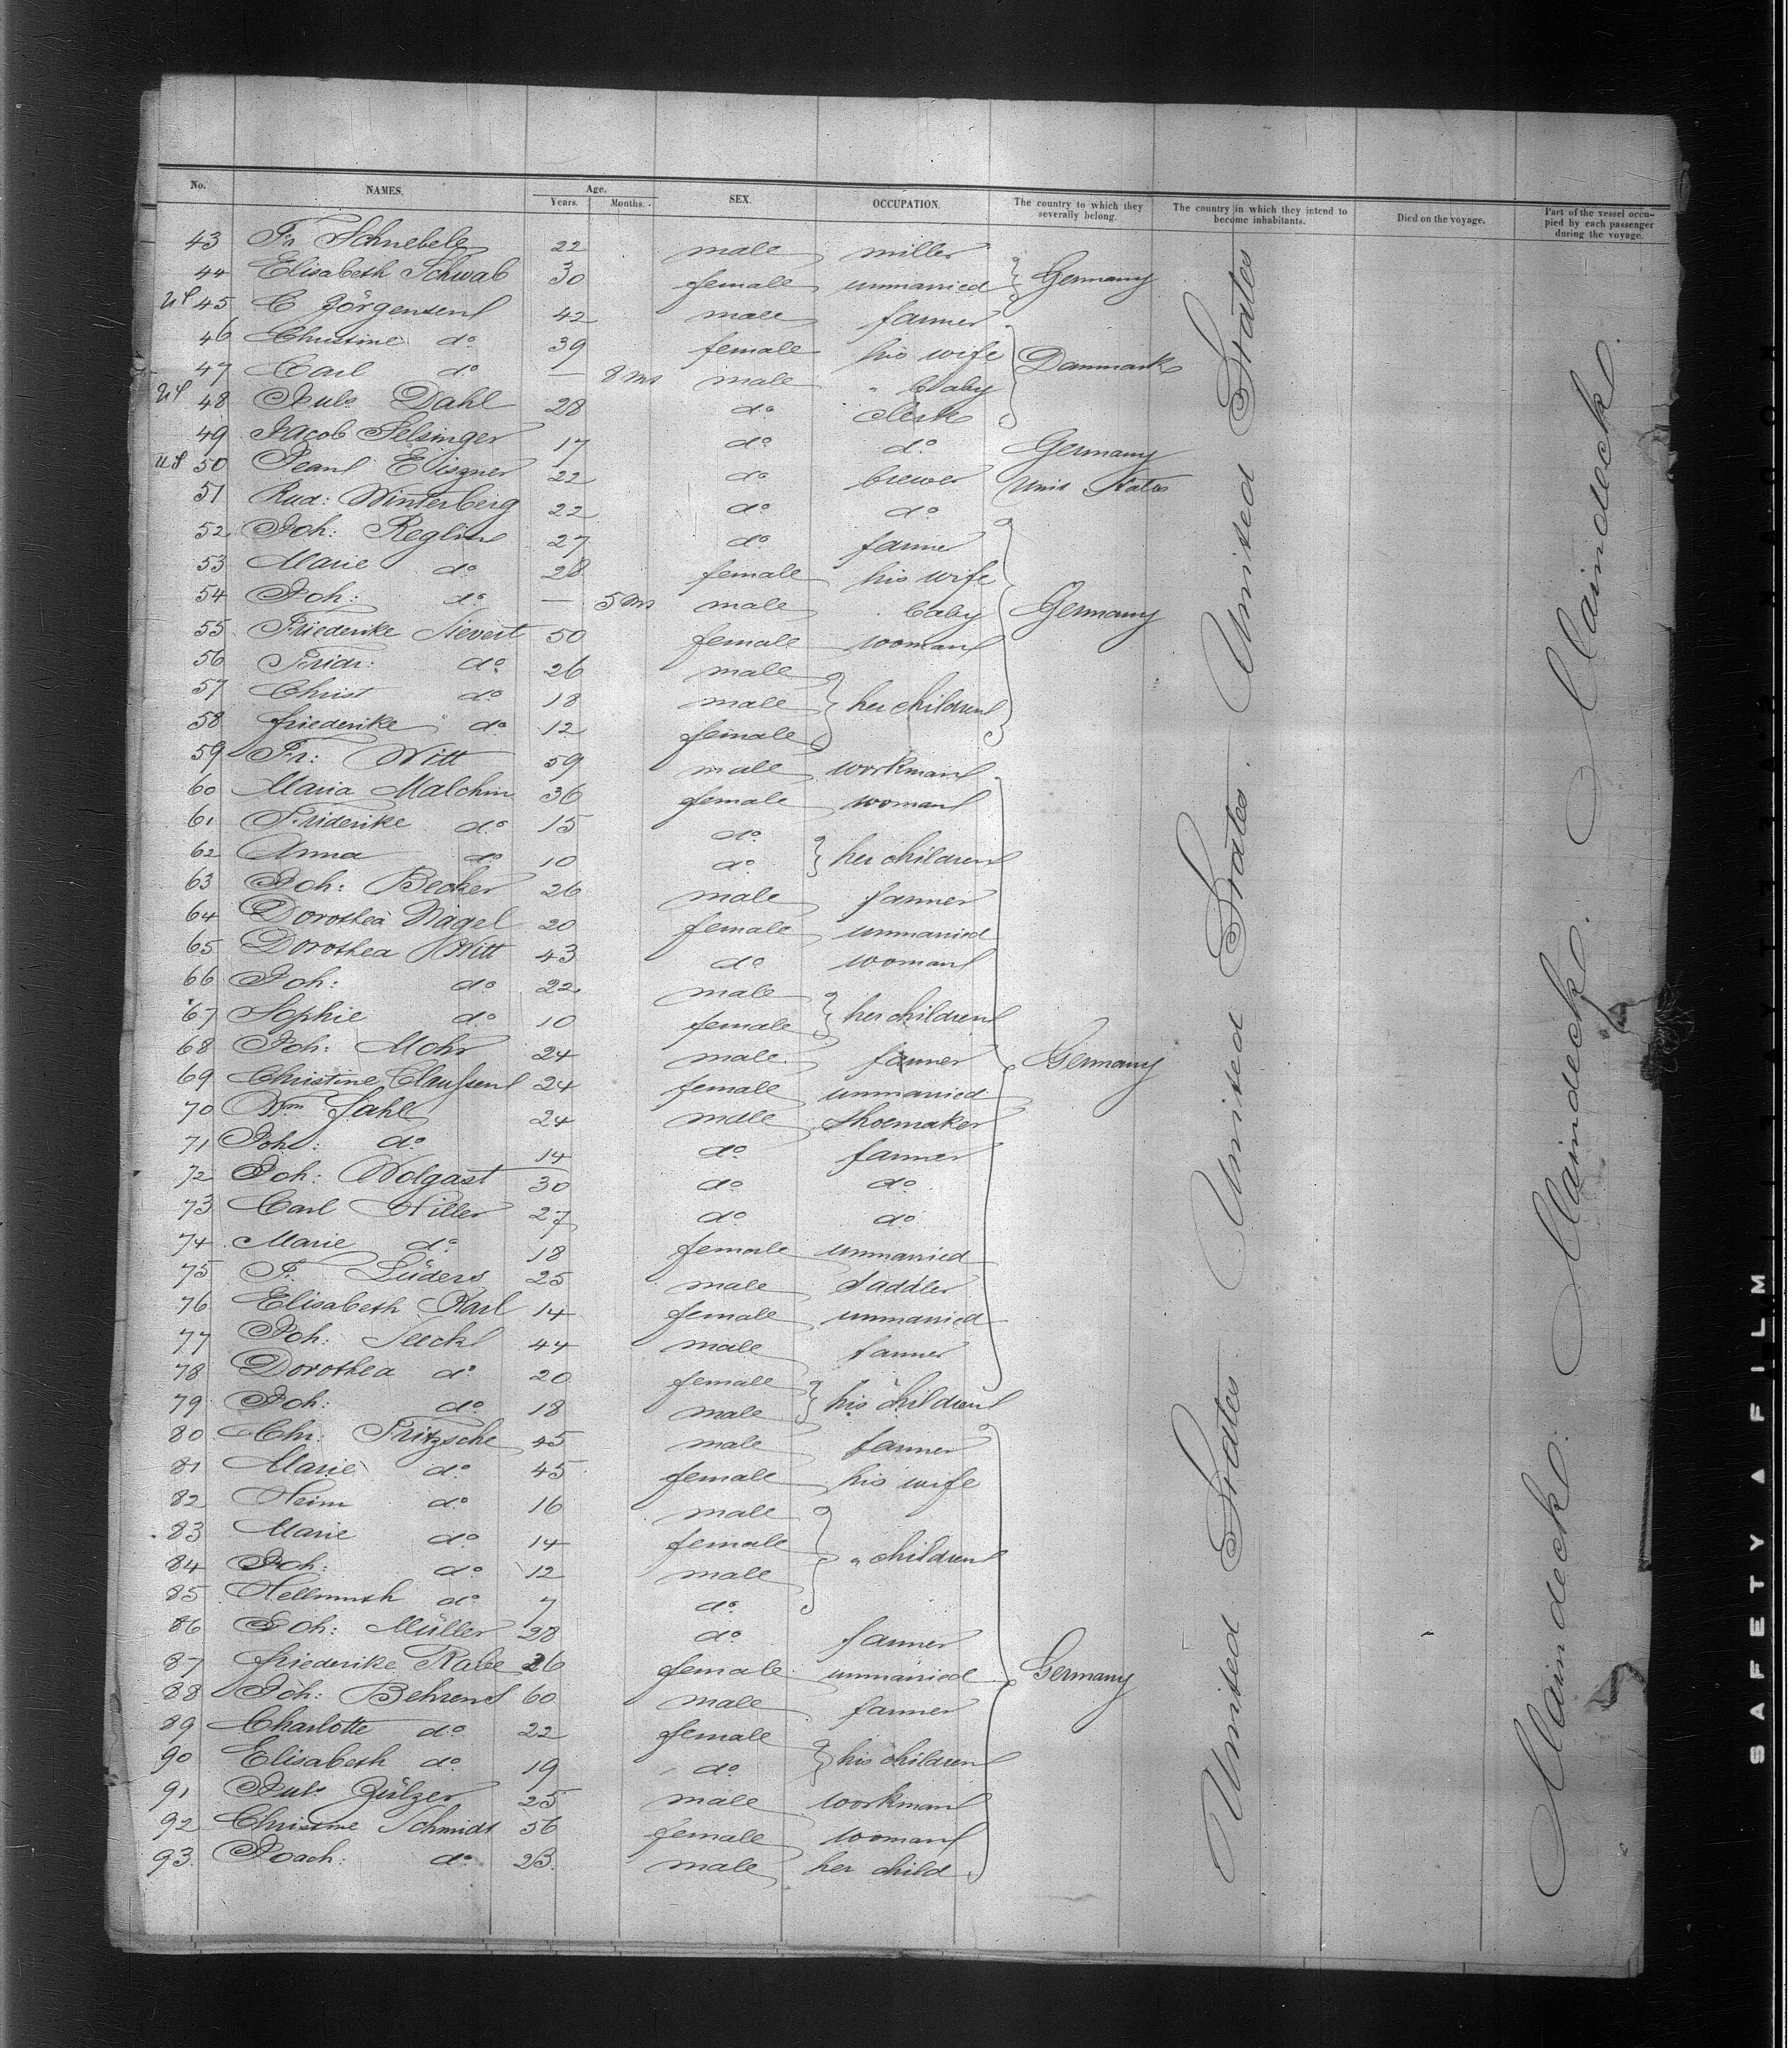 No. NAMES. Age. Years. Months. SEX. OCCUPATION. The country to which they severally belong. The country in which they intend to become inhabitants. Died on the voyage. Part of the vessel occupied by each passenger during the voyage.
43 Fr Schnebele 22 male miller
44 Elisabeth Schwab 30 female unmarried Germany
US 45 C Jörgensen 42 male farmer
46 Christine do 39 female his wife Danmark
47 Carl do — 8 Ms male " baby
US 48 Juls Dahl 28 do clerk
49 Jacob Selsinger 17 do do Germany
US 50 Jean Eliszner 22 do brewer Unit States
51 Rud: Winterberg 22 do do
52 Joh: Reglin 27 do farmer
53 Marie do 28 female his wife
54 Joh: do — 5 Ms male baby Germany
55 Friederike Sievert 50 female woman
56 Fridr: do 26 male
57 Christ do 18 male her children
58 friederike do 12 female
59 Fr: Witt 59 male workman
60 Maria Malchin 36 female woman
61 Friderike do 15 do
62 Anna do 10 do her children
63 Joh: Becker 26 male farmer
64 Dorothea Nagel 20 female unmarried
65 Dorothea Witt 43 do woman
66 Joh: do 22 male
67 Sophie do 10 female her children
68 Joh: Mohr 24 male farmer Germany
69 Christine Claussen 24 female unmarried
70 Wm Jahl 24 male Shoemaker
71 Joh: do 14 do farmer
72 Joh: Wolgast 30 do do
73 Carl Hiller 27 do do
74 Marie do 18 female unmarried
75 F. Lüders 25 male Saddler
76 Elisabeth Karl 14 female unmarried
77 Joh: Teeckl 44 male farmer
78 Dorothea do 20 female
79 Joh: do 18 male his children
80 Chr: Fritzsche 45 male farmer
81 Marie do 45 female his wife
82 Heinr do 16 male
83 Marie do 14 female
84 Joh: do 12 male " children
85 Hellmuth do 7 do
86 Joh: Müller 28 do farmer
87 friederike Rabe 26 female unmarried Germany
88 Joh: Behrens 60 male farmer
89 Charlotte do 22 female
90 Elisabeth do 19 do his children
91 Juls Zülzer 25 male workman
92 Christine Schmidt 56 female woman
93 Joach: do 23 male her child
United States United States. United States United States.
Maindeck. Maindeck. Maindeck. Maindeck.
SAFETY ▲ FILM